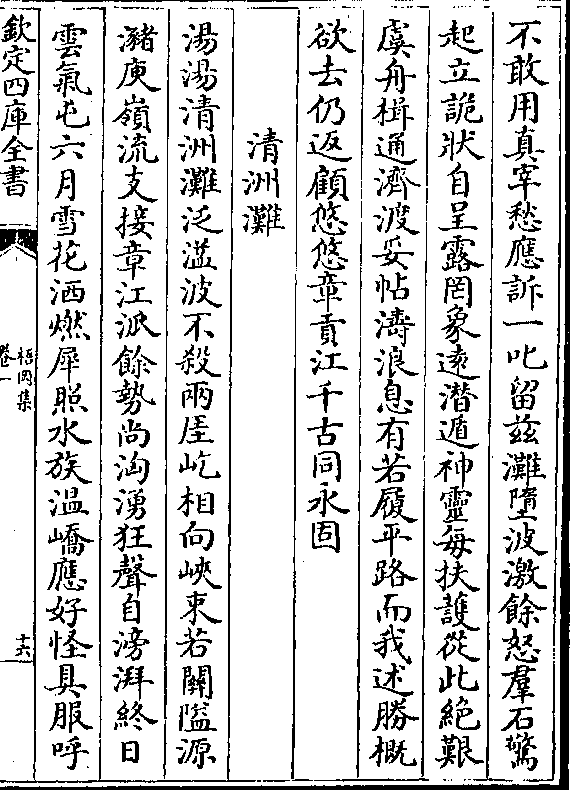 不敢用真宰愁應訴一叱留兹灘墮波激餘怒羣石驚
起立詭狀自呈露罔象遠潛遁神靈每扶護從此絶艱
虞舟楫通濟渡妥帖濤浪息有若履平路而我述勝概
欲去仍返顧悠悠章貢江千古同永固
清洲灘
湯湯清洲灘泛溢波不殺兩厓屹相向峽束若關隘源
瀦庾嶺流支接章江派餘勢尚洶湧狂聲自滂湃終日
雲氣屯六月雪花洒燃犀照水族温嶠應好怪具服呼
欽定四庫全書
梧岡集
卷一
十六